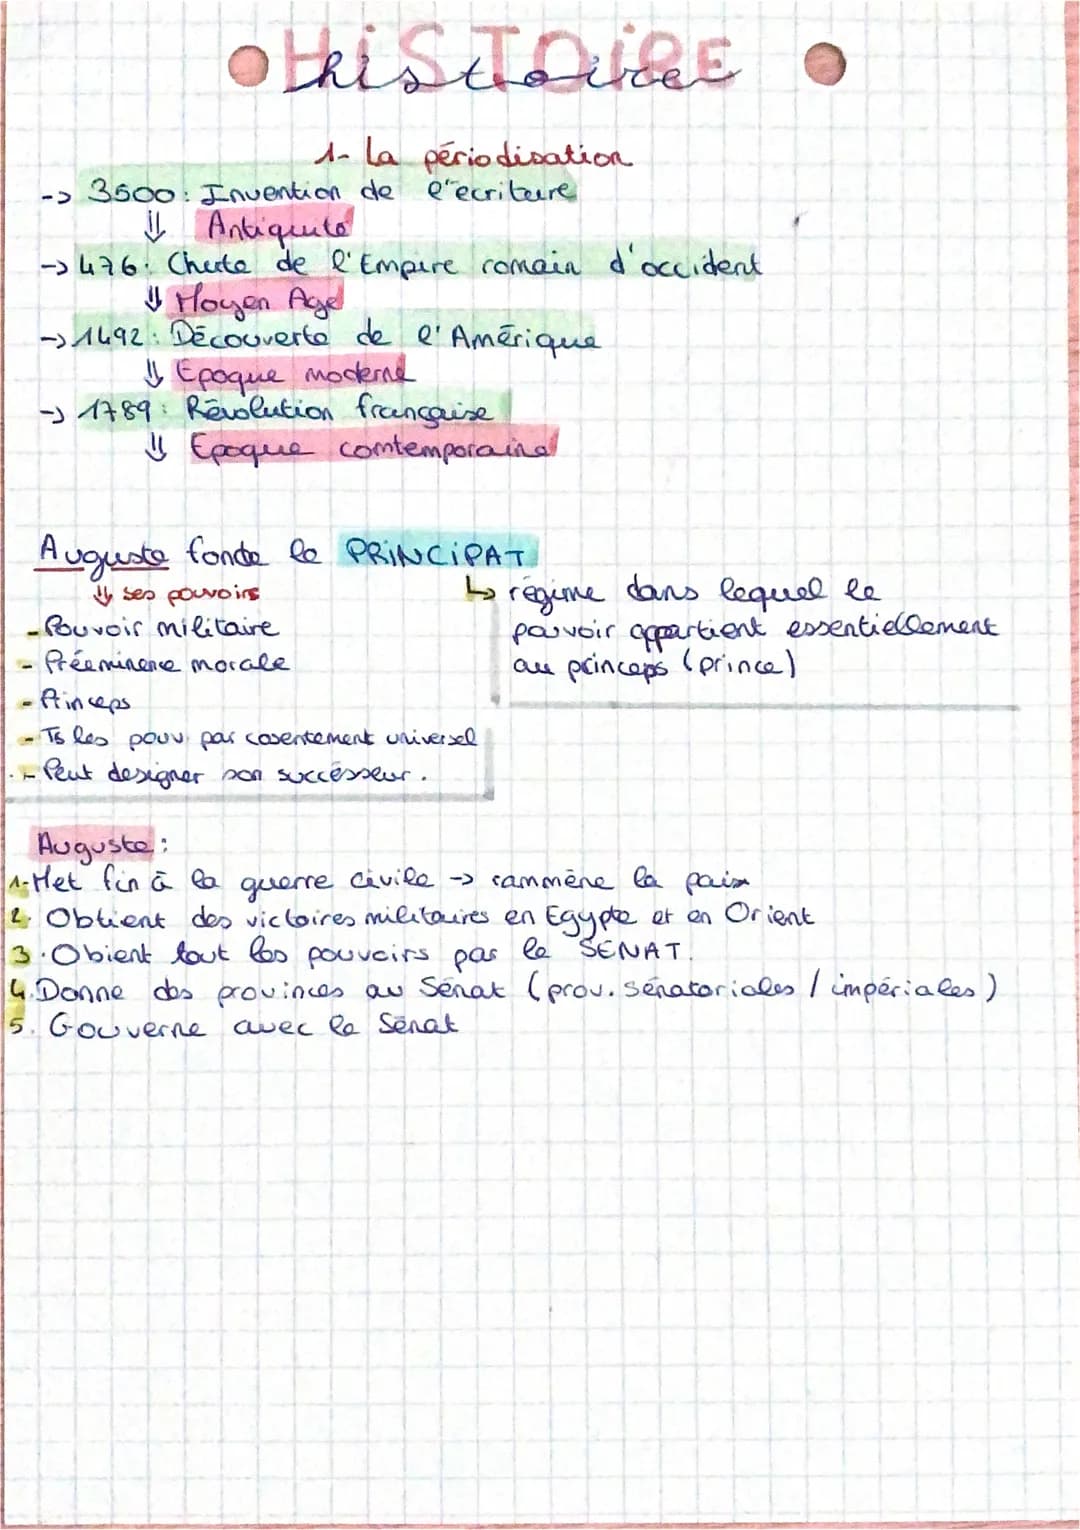 HiSTOiRE
histoire
1- La périodisation
-> 3500: Invention de l'ecriture
⇓ Antiquité
-> 476: Chute de l'Empire romain d'occident
⇓ Moyen Age
-> 1492: Découverte de l'Amérique
⇓ Epoque moderne
-> 1789: Révolution française
⇓ Epoque comtemporaine
Auguste fonde le PRiNCiPAT
⇓ ses pouvoirs
↳ régime dans lequel le
pouvoir appartient essentiellement
au princeps (prince)
- Pouvoir militaire
- Préeminence morale
- Princeps
- Ts les pouv par cosentement universel
- Peut designer son successeur.
Auguste:
1- Met fin à la guerre civile -> rammène la paix
2. Obtient des victoires militaires en Egypte et en Orient
3. Obient tout les pouvoirs par le SENAT.
4. Donne des provinces au Sénat (prov. sénatoriales / impériales)
5. Gouverne avec le Sénat